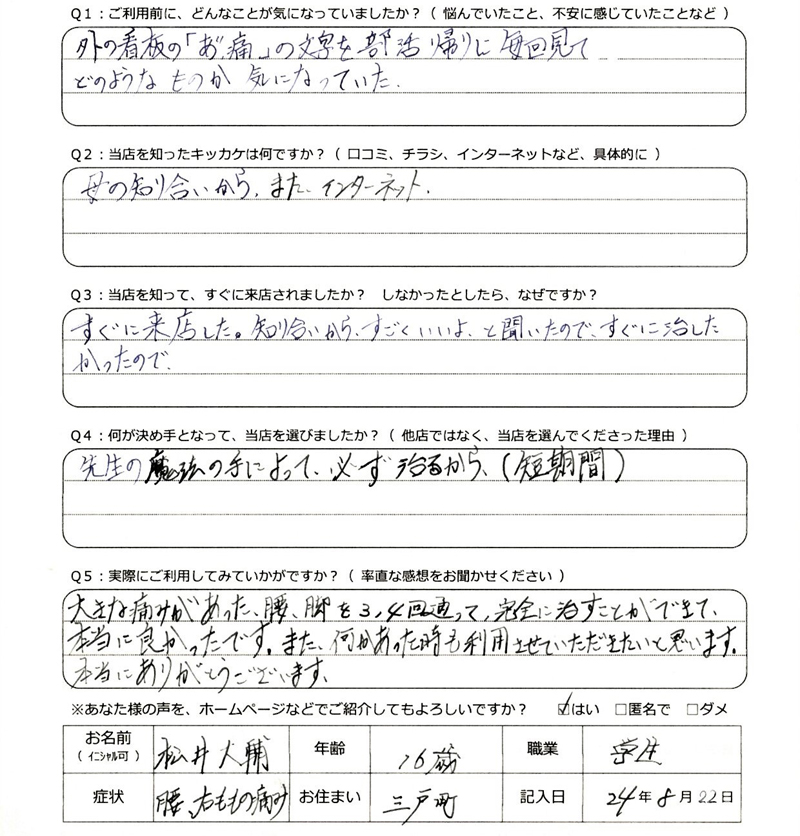 Q1：ご利用前に、どんなことが気になっていましたか？（ 悩んでいたこと、不安に感じていたことなど ）
外の看板の「お、痛」の文字を部活帰りに毎回見て
どのようなものか気になっていた.
Q2：当店を知ったキッカケは何ですか？（ 口コミ、チラシ、インターネットなど、具体的に ）
母の知り合いから, また、インターネット.
Q3：当店を知って、すぐに来店されましたか？ しなかったとしたら、なぜですか？
すぐに来店した。知り合いから、すごくいいよ、と聞いたので、すぐに治した
かったので.
Q4：何が決め手となって、当店を選びましたか？（ 他店ではなく、当店を選んでくださった理由 ）
先生の魔法の手によって、必ず治るから、(短期間)
Q5：実際にご利用してみていかがですか？（ 率直な感想をお聞かせください ）
大きな痛みがあった、腰、脚を3,4回通って,完全に治すことができて、
本当に良かったです. また、何かあった時も利用させていただきたいと思います.
本当にありがとうございます.
※あなた様の声を、ホームページなどでご紹介してもよろしいですか？ ☑はい □匿名で □ダメ
お名前 松井大輔 年齢 16歳 職業 学生
（ イニシャル可 ）
症状 腰、右ももの痛み お住まい 三戸町 記入日 24年8月22日